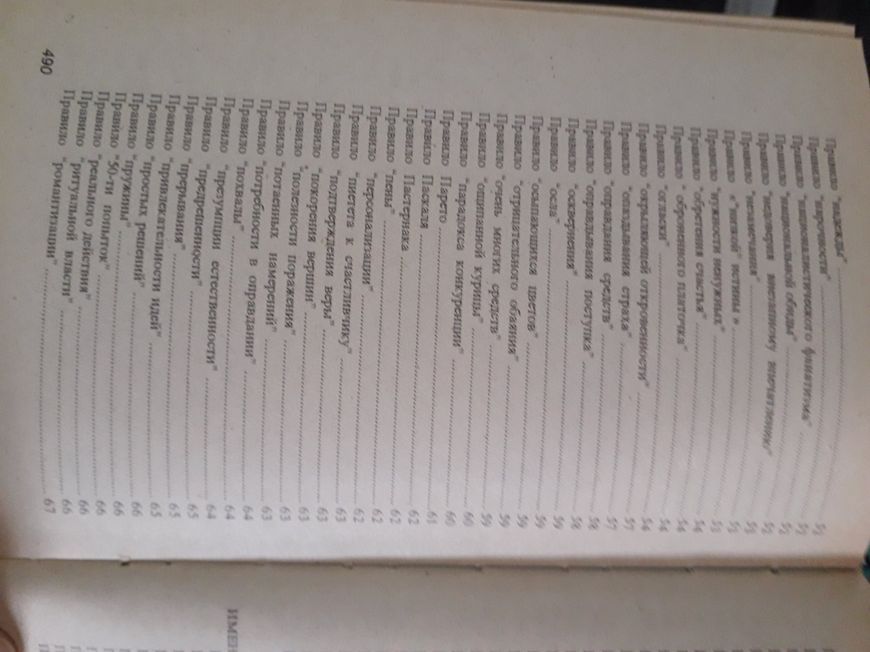 Правило "надежды"
Правило "нарочности"
Правило "националистического фанатизма"
Правило "национальной обиды"
Правило "недоверия внезапному впечатлению"
Правило "незамечания"
Правило «"низкой" истины»
Правило "нужности ненужных"
Правило "обретения счастья" 54
Правило "оброненного платочка" 54
Правило "огласки" 54
Правило "окрыляющей откровенности"
Правило "опаздывания страха" 57
Правило "оправдания средств"
Правило "оправдывания поступка" 58
Правило "осквернения"
Правило "осла" 59
Правило "осыпающихся цветов" 59
Правило "отрицательного обаяния" 59
Правило "очень многих средств" 59
Правило "ощипанной курицы"
Правило "парадокса конкуренции" 60
Правило Парето
Правило Паскаля
Правило Пастернака 62
Правило "пены" 62
Правило "персонализации" 62
Правило "пиетета к счастливчику"
Правило "подтверждения веры" 63
Правило "покорения вершин" 63
Правило "полезности поражения" 63
Правило "потаенных намерений" 63
Правило "потребности в оправдании"
Правило "похвалы" 64
Правило "презумпции естественности" 64
Правило "предрешенности"
Правило "прерывания" 65
Правило "привлекательности идей" 65
Правило "простых решений"
Правило "пружины" 66
Правило "50-ти попыток" 66
Правило "реального действия" 66
Правило "ритуальной власти" 66
Правило "романтизации" 67
490
ИМЕН